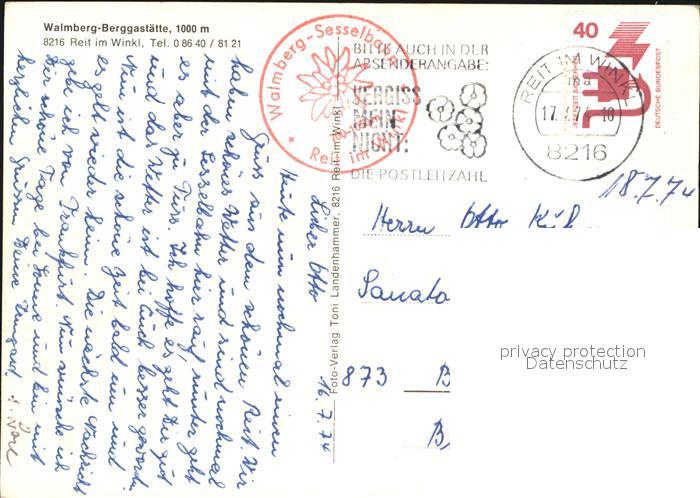 Walmberg-Berggastätte, 1000 m
8216 Reit im Winkl, Tel. 0 86 40 / 81 21
Walmberg-Sesselbahn
Reit im Winkl
BITTE AUCH IN DER
ABSENDERANGABE:
VERGISS
MEIN
NICHT:
DIE POSTLEITZAHL
REIT IM WINKL
17.7.74-18
8216
40
JEDERZEIT SICHERHEIT
DEUTSCHE BUNDESPOST
18.7.74
Foto-Verlag Toni Landenhammer, 8216 Reit im Winkl
16.7.74
Lieber Otto
Heute nun nochmal einen
Gruss aus dem schönen Reit. Wir
haben schönes Wetter und sind nochmal
mit der Sesselbahn hier rauf, runter geht
es aber zu Fuss. Ich hoffe es geht Dir gut
und das Wetter ist bei Euch besser geworden.
Nun ist die schöne Zeit bald um und
es geht wieder heim. Die nächste Nachricht
geb ich von Frankfurt. Nun wünsche ich
Dir schöne Tage bei Sonne und bin mit
herzlichen Grüssen Deine Irmgard
Herrn Otto
Sanato
873 B
B,
privacy protection
Datenschutz